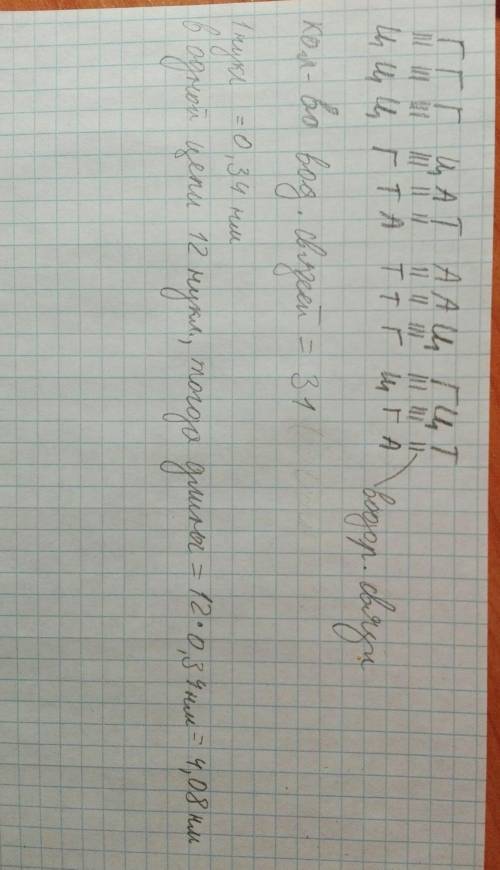 Г Г Г Ц А Т А А Ц Г Ц Т
Ц Ц Ц Г Т А Т Т Г Ц Г А водор. связи
кол-во вод. связей = 31
1 нукл = 0,34 нм
в одной цепи 12 нукл., тогда длины = 12 · 0,34 нм = 4,08 нм